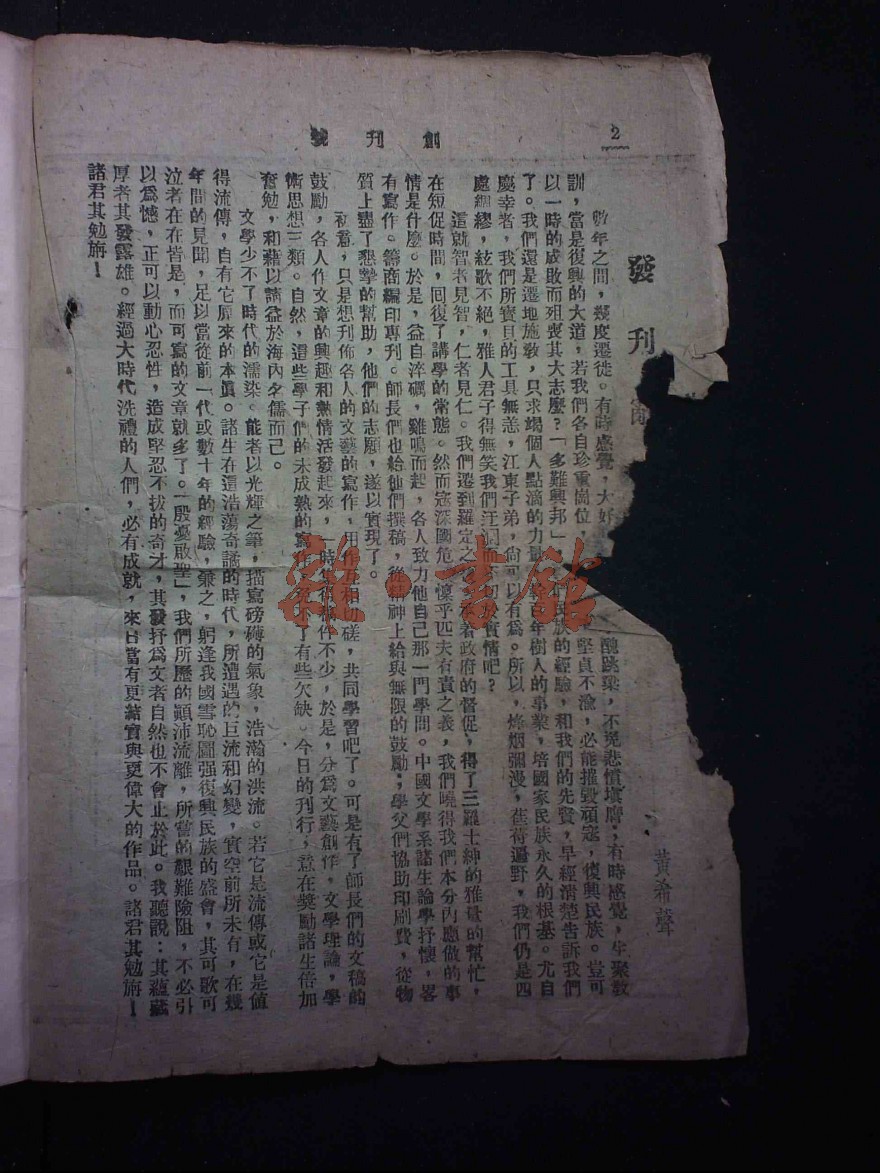 2
創刊號
發刊
黃希聲
數年之間，幾度遷徙。有時感覺，大好 醜跳梁，不免悲憤塡膺；有時感覺，生聚教
訓，當是復興的大道，若我們各自珍重崗位 堅貞不渝，必能摧毀頑寇，復興民族。豈可
以一時的成敗而殂喪其大志麼？「多難興邦」 民族的經驗，和我們的先賢，早經清楚告訴我們
了。我們還是遷地施敎，只求竭個人點滴的力量 百年樹人的事業，培國家民族永久的根基。尤自
慶幸者，我們所寳貝的工具無恙，江東子弟，尙可以有爲。所以，烽烟彌漫，萑苻遍野，我們仍是四
處綢繆，絃歌不絕，雅人君子得無笑我們迂 實情吧？
這就智者見智，仁者見仁。我們遷到羅定之 着政府的督促，得了三羅士紳的雅量的幫忙，
在短促時間，囘復了講學的常態。然而寇深國危 懍乎匹夫有責之義，我們曉得我們本分內應做的事
情是什麼。於是，益自淬礪，雞鳴而起，各人致力他自己那一門學問。中國文學系諸生論學抒懷，畧
有寫作。籌商編印專刊。師長們也給他們撰稿，從精神上給與無限的鼓勵；學父們協助印刷費，從物
質上盡了懇摯的幫助，他們的志願，遂以實現了。
初意，只是想刋佈各人的文藝的寫作，用作互相切磋，共同學習吧了。可是有了師長們的文稿的
鼓勵，各人作文章的興趣和熱情活發起來，一時 件不少，於是，分爲文藝創作，文學理論，學
術思想三類。自然，這些學子們的未成熟的寫作 不了有些欠缺。今日的刊行，意在獎勵諸生倍加
奮勉，和藉以請益於海內名儒而已。
文學少不了時代的濡染。能者以光輝之筆，描寫磅礴的氣象，浩瀚的洪流。若它是流傳或它是値
得流傳，自有它原來的本眞。諸生在這浩蕩奇譎的時代，所遭遇的巨流和幻變，實空前所未有，在幾
年間的見聞，足以當從前一代或數十年的經驗，兼之，躬逢我國雪恥圖强復興民族的盛會，其可歌可
泣者在在皆是，而可寫的文章就多了。「殷憂啟聖」，我們所歷的顚沛流離，所嘗的艱難險阻，不必引
以爲憾，正可以動心忍性，造成堅忍不拔的奇才，其發抒爲文者自然也不會止於此。我聽說：其蘊藏
厚者其發露雄。經過大時代洗禮的人們，必有成就，來日當有更蓄實與更偉大的作品。諸君其勉旃！
諸君其勉旃！